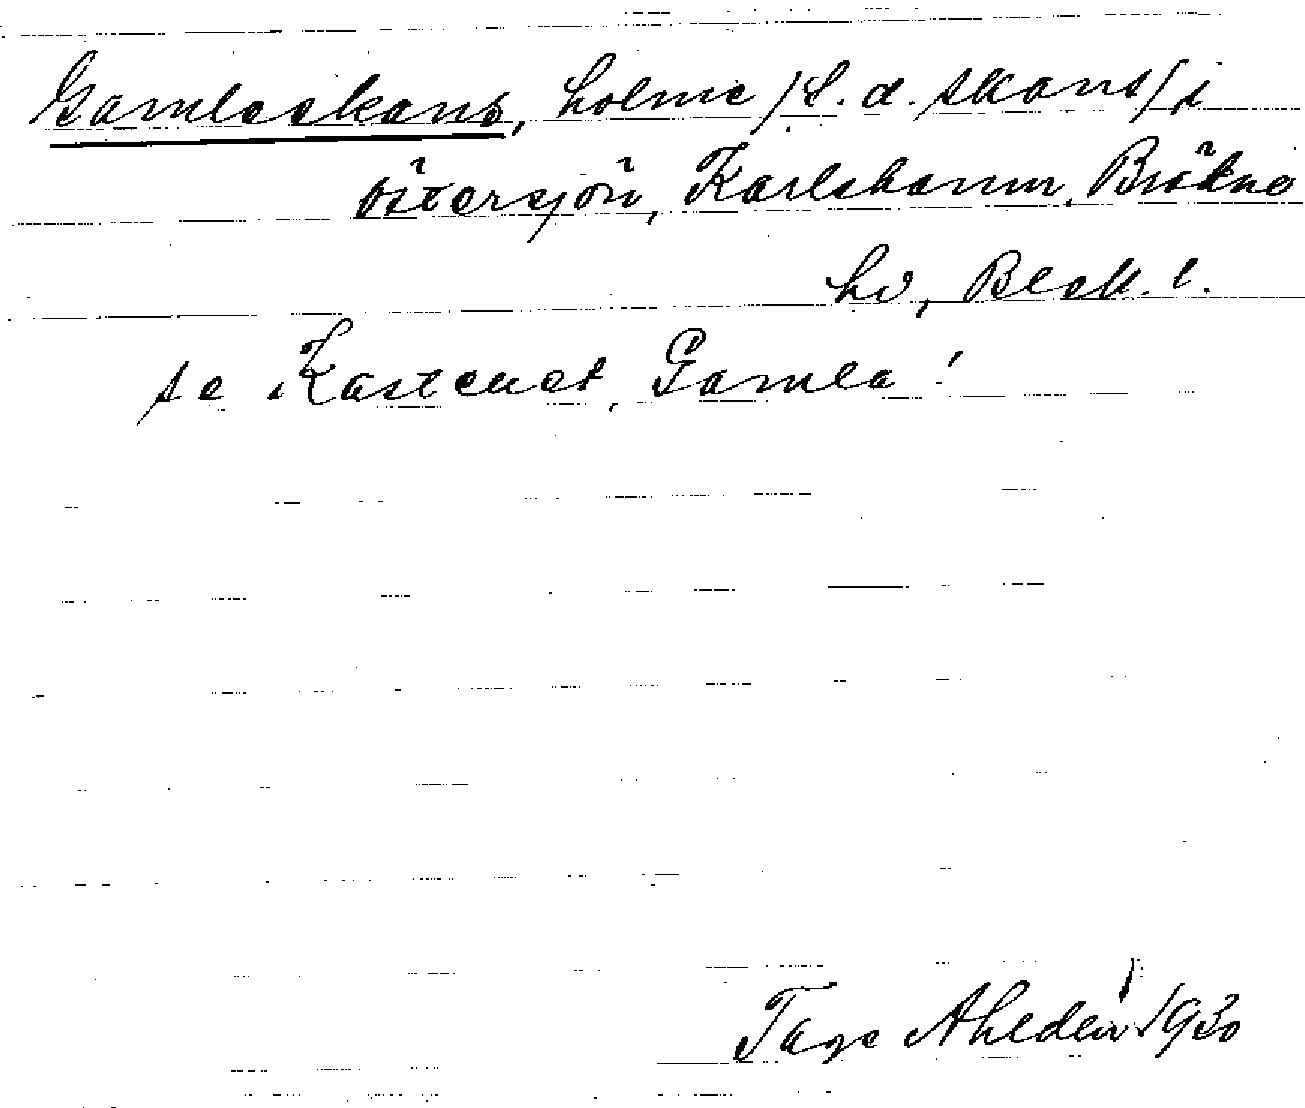 Gamleskans, holme /f. d. skans/ i
Östersjön, Karlshamn, Bräkne
hd, Blek. l.
se Kastellet, Gamla!
Tage Ahldén 1930